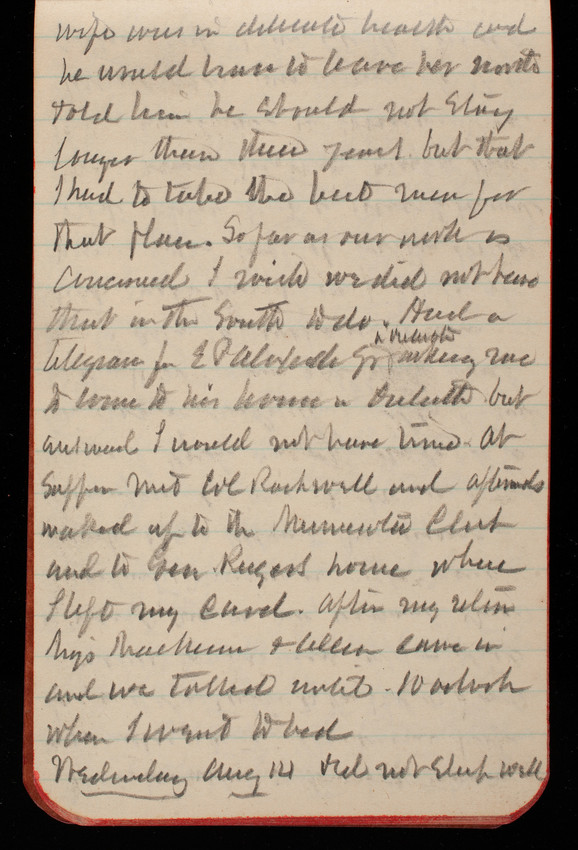 wife was in delicate health and
he would have to leave her north
told him he should not stay
longer than three years but that
I had to take the best man for
that place. So far as our work is
concerned I wish we did not have
that in the South to do. Had a
in Duluth
telegram fr E P Alexander Jr asking me
to come to his house in Duluth but
answered I would not have time. At
supper met Col Rockwell and afterwards
walked up to the Minnesota Club
and to Gen Rugers home where
I left my card. After my return
Majs & Allen came in
and we talked until 10 oclock
when I went to bed
Wednesday Aug 14 Did not sleep well